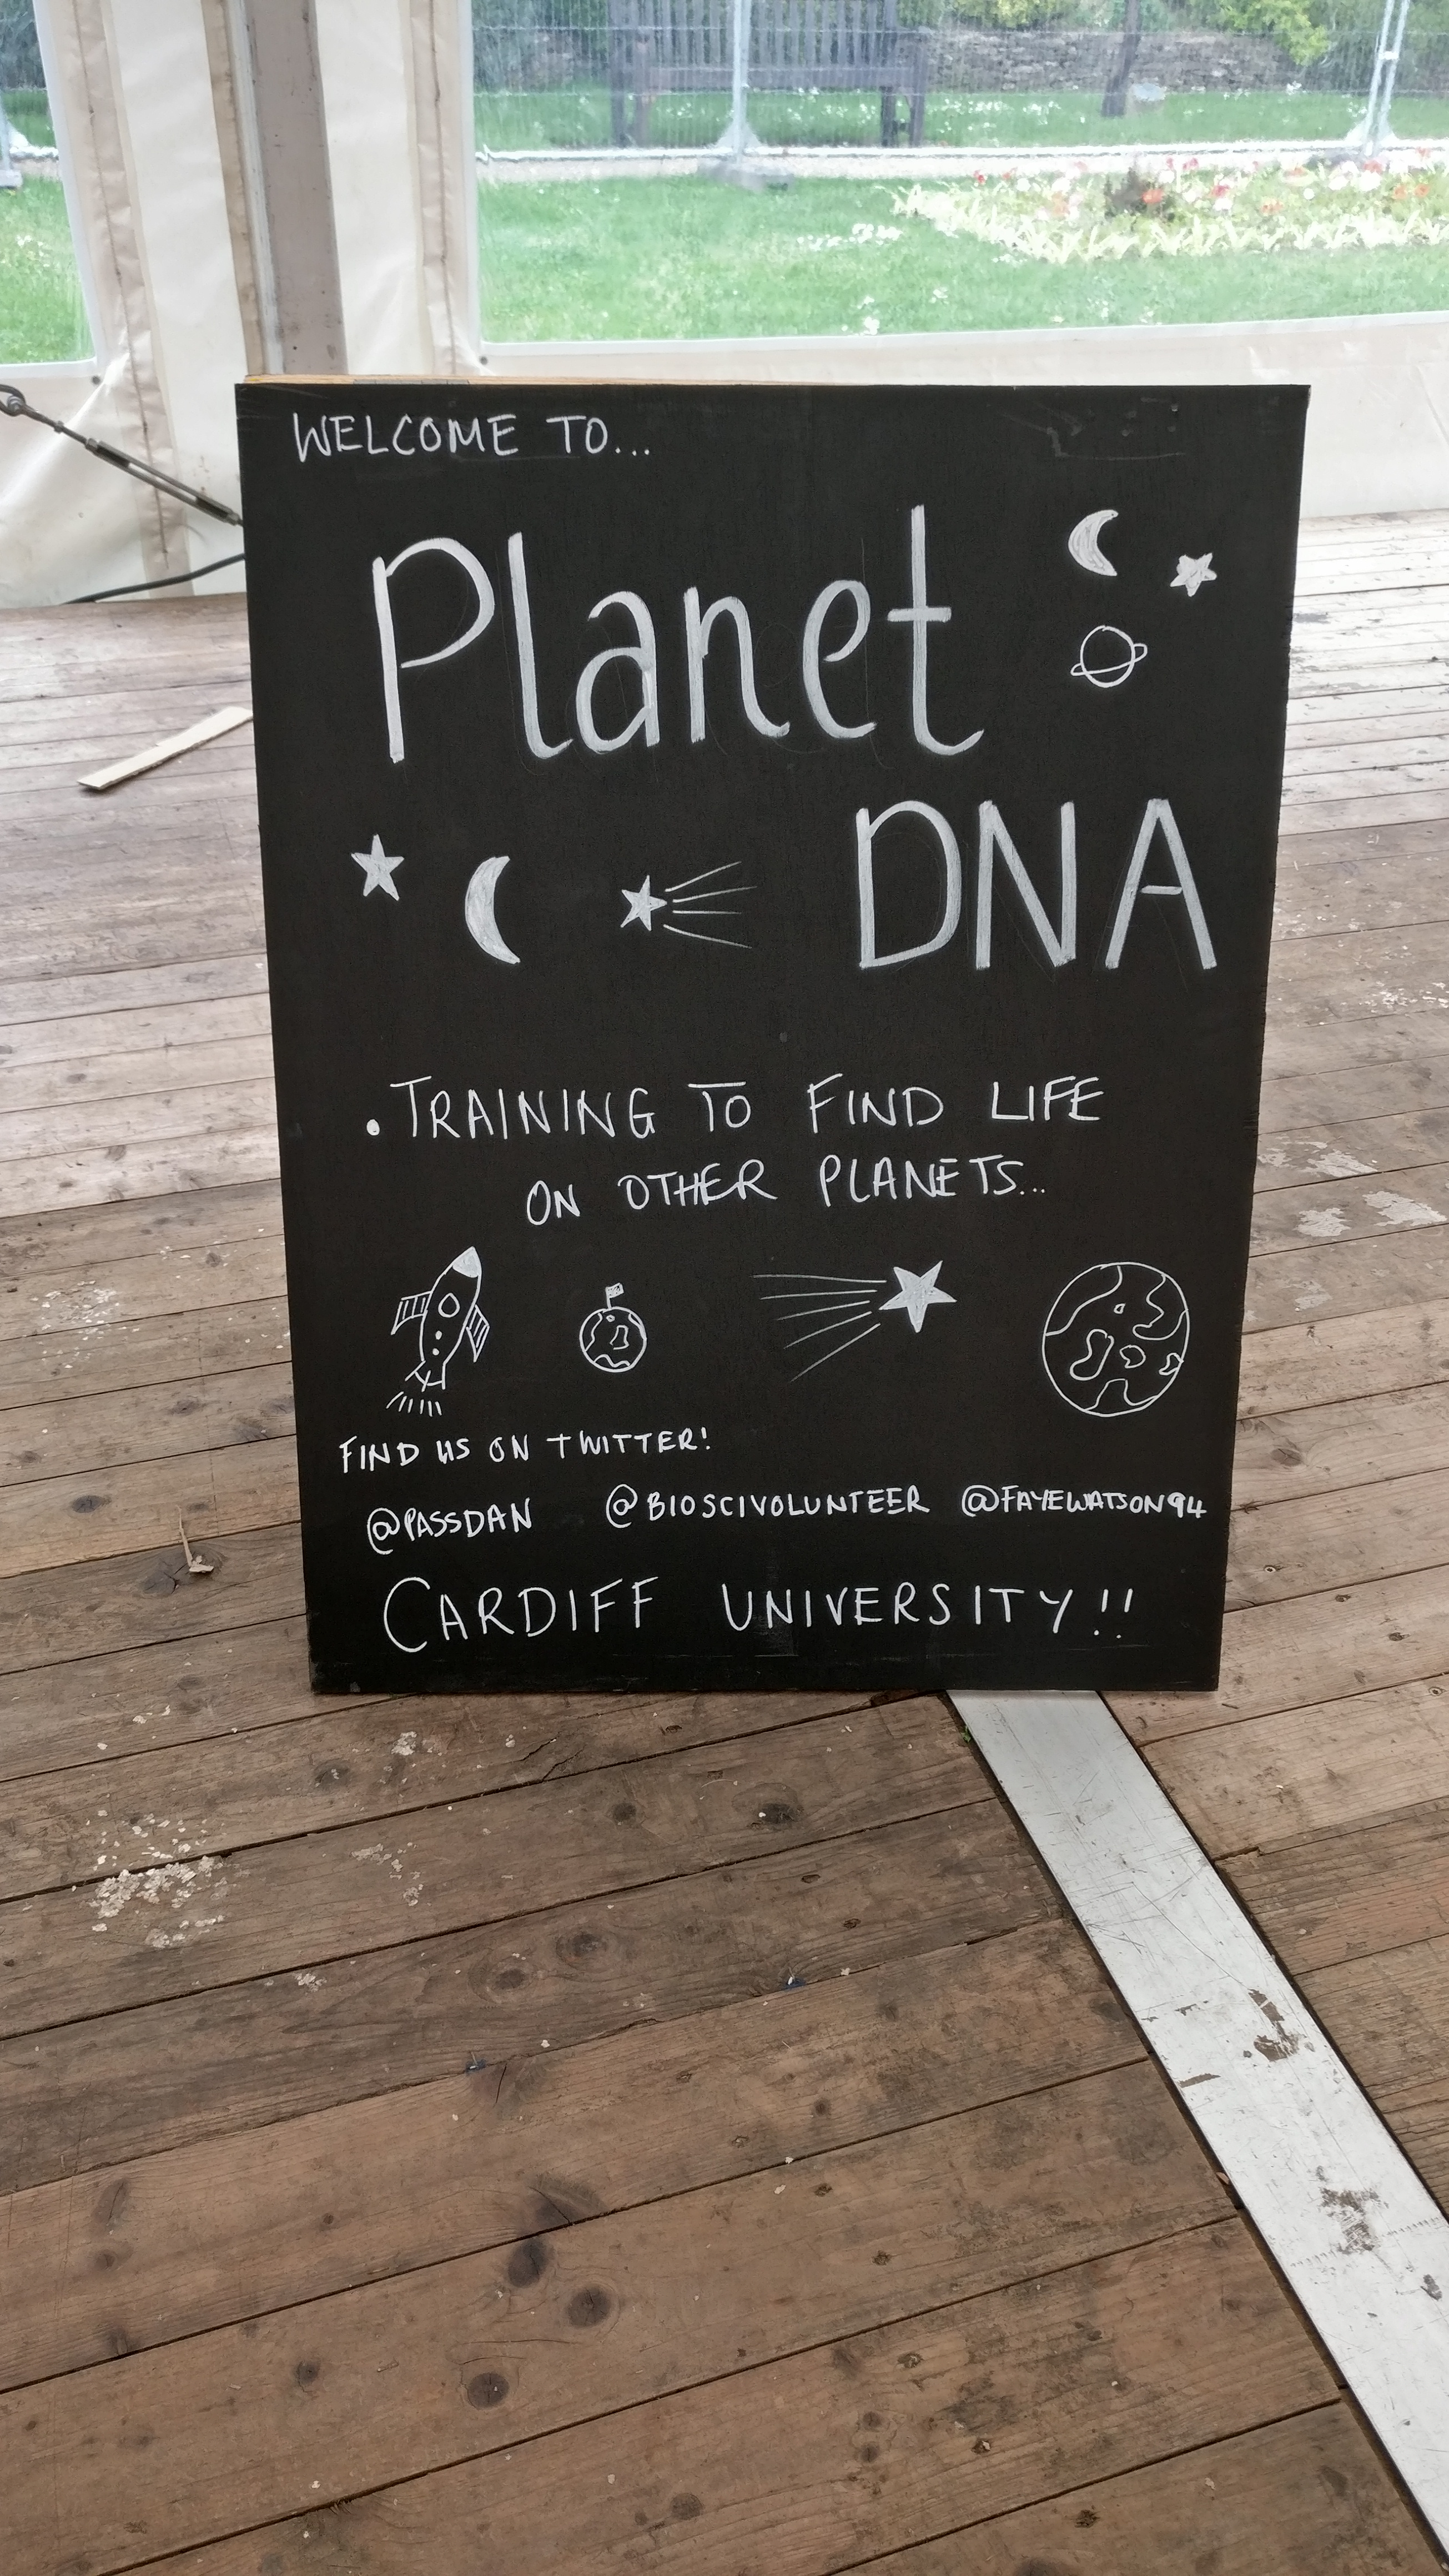 WELCOME TO...
Planet
DNA
. TRAINING TO FIND LIFE
ON OTHER PLANETS...
FIND US ON TWITTER!
@PASSDAN @BIOSCIVOLUNTEER @FAYEWATSON94
CARDIFF UNIVERSITY!!